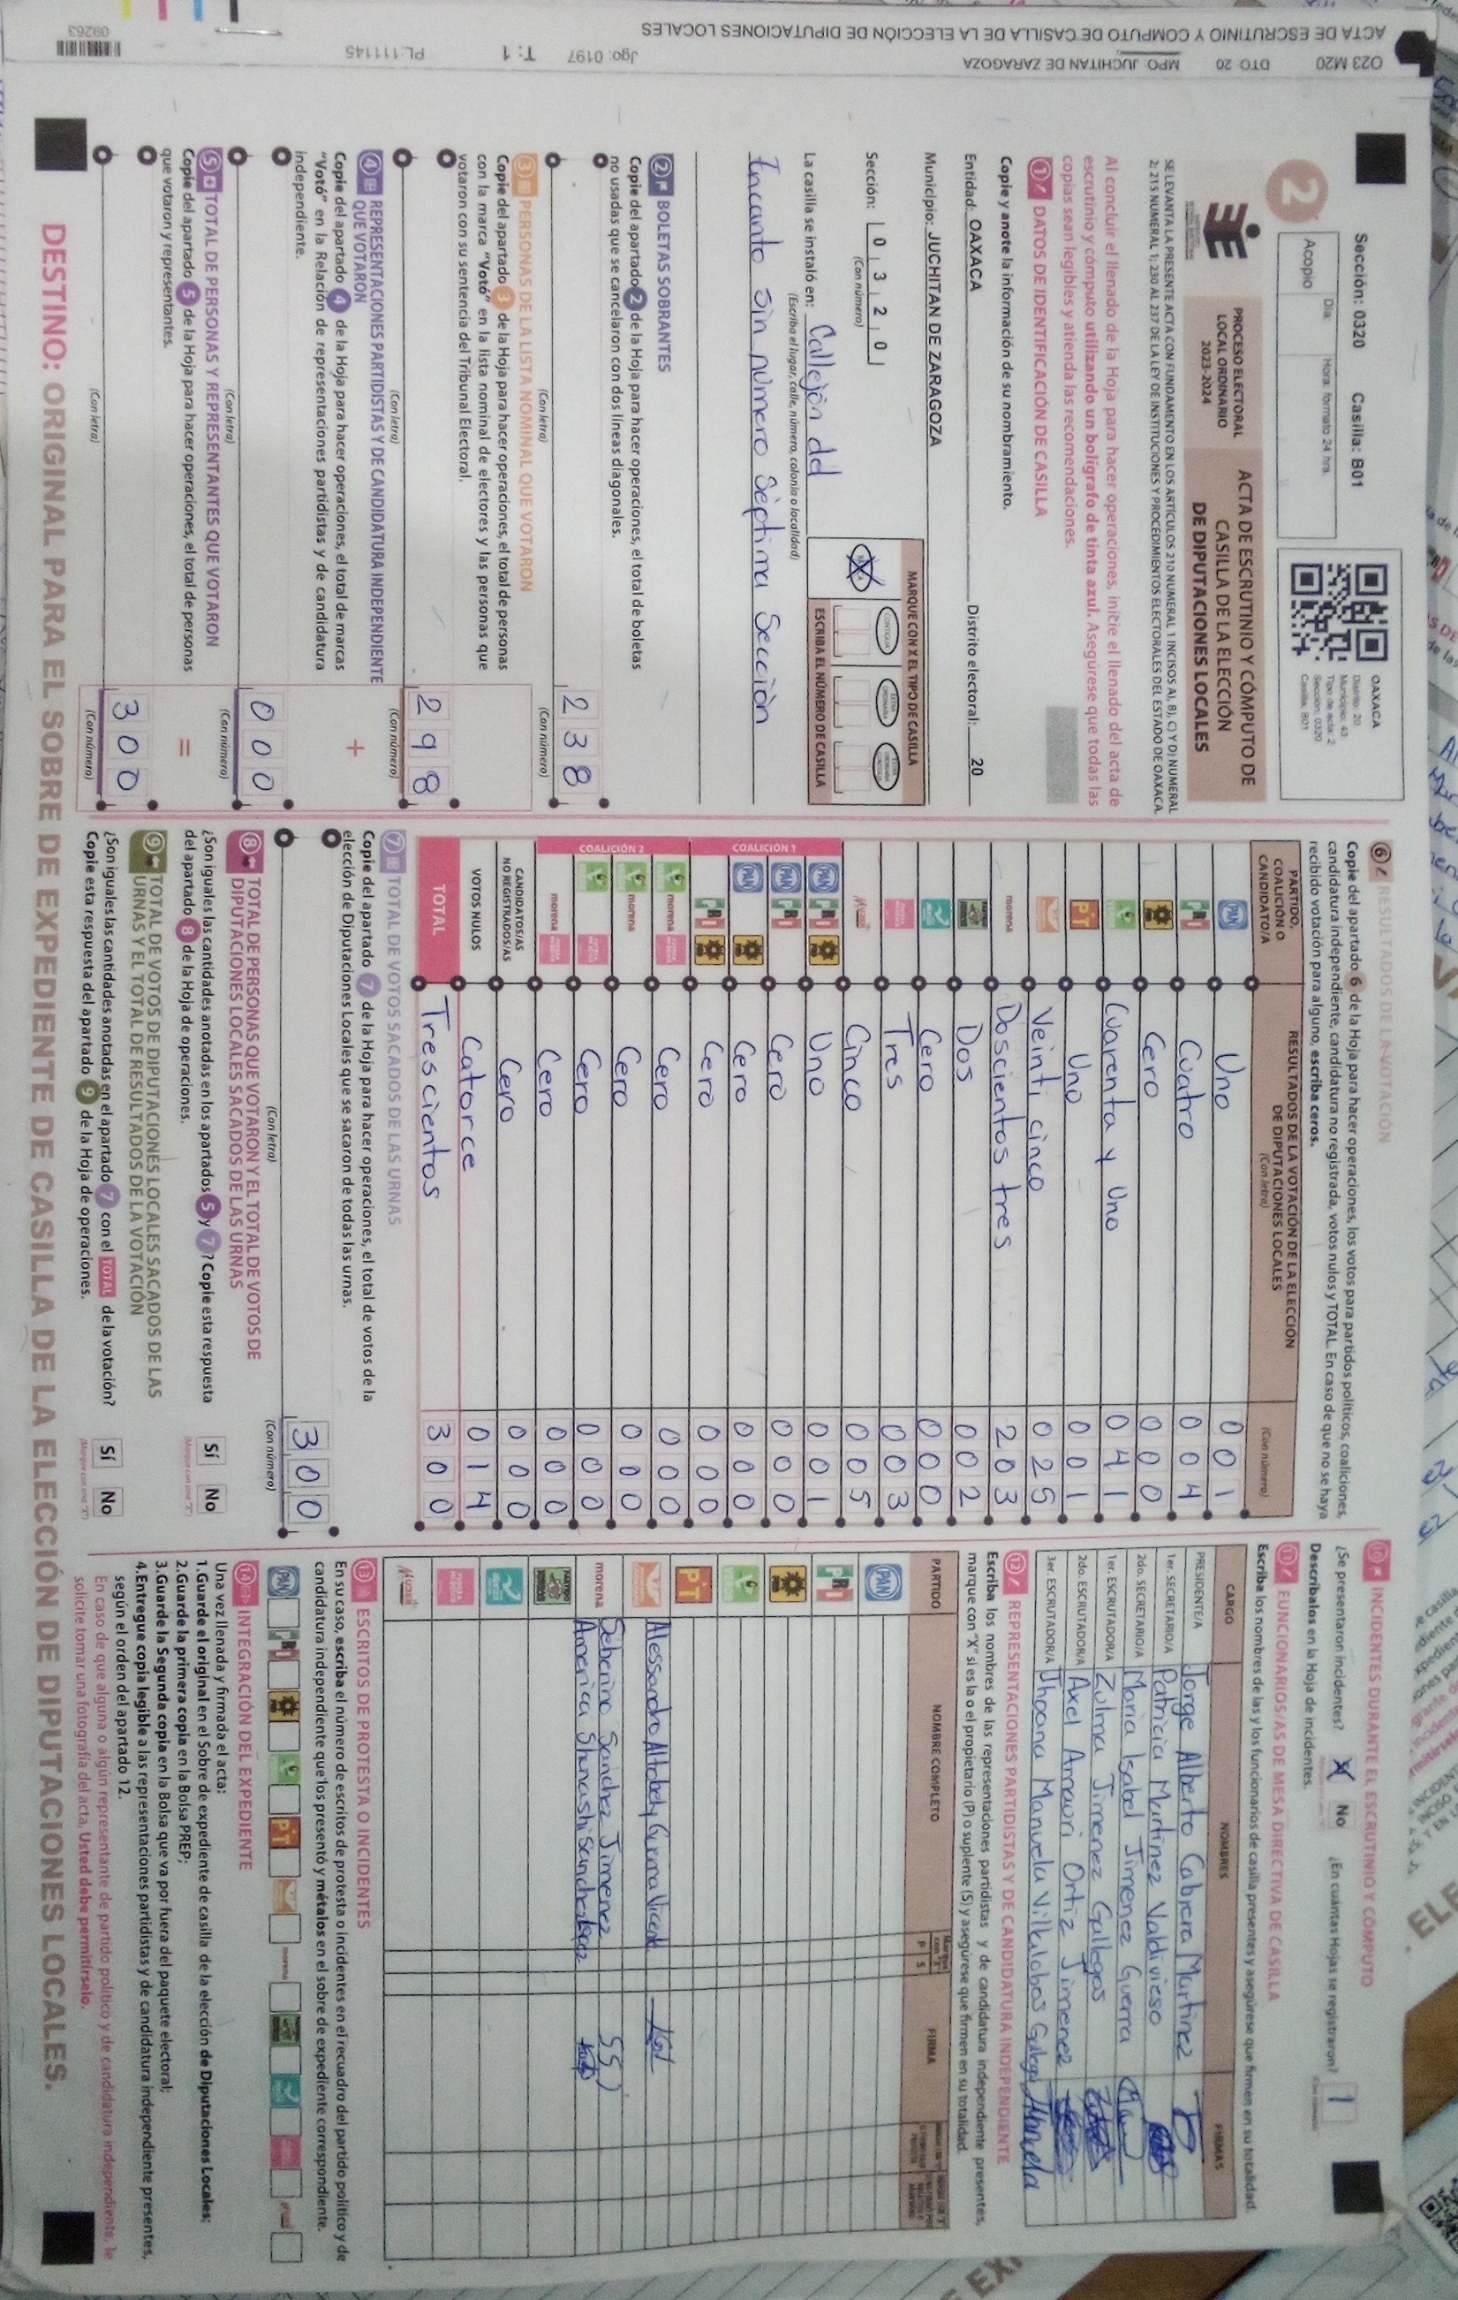 ACTA DE ESCRUTINIO Y CÓMPUTO DE CASILLA DE LA ELECCIÓN DE DIPUTACIONES LOCALES
O23 M20 DTO. 20 MPO: JUCHITAN DE ZARAGOZA Jgo: 0197 T: 1 PL:111145
09263
Sección: 0320 Casilla: B01
2
Acopio
Día:
Hora: formato 24 hrs.
OAXACA
Distrito: 20
Municipio: 43
Tipo de acta: 2
Sección: 0320
Casilla: B01
PROCESO ELECTORAL
LOCAL ORDINARIO
2023-2024
ACTA DE ESCRUTINIO Y CÓMPUTO DE
CASILLA DE LA ELECCIÓN
DE DIPUTACIONES LOCALES
SE LEVANTA LA PRESENTE ACTA CON FUNDAMENTO EN LOS ARTÍCULOS 210 NUMERAL 1 INCISOS A), B), C) Y D) NUMERAL
2; 215 NUMERAL 1; 230 AL 237 DE LA LEY DE INSTITUCIONES Y PROCEDIMIENTOS ELECTORALES DEL ESTADO DE OAXACA.
Al concluir el llenado de la Hoja para hacer operaciones, inicie el llenado del acta de
escrutinio y cómputo utilizando un bolígrafo de tinta azul. Asegúrese que todas las
copias sean legibles y atienda las recomendaciones.
1 DATOS DE IDENTIFICACIÓN DE CASILLA
Copie y anote la información de su nombramiento.
Entidad: OAXACA Distrito electoral: 20
Municipio: JUCHITAN DE ZARAGOZA
Sección: 0 3 2 0
(Con número)
MARQUE CON X EL TIPO DE CASILLA
ESCRIBA EL NÚMERO DE CASILLA
La casilla se instaló en: Callejón del
(Escriba el lugar, calle, número, colonia o localidad)
Incanto sin número Séptima Sección
2 BOLETAS SOBRANTES
Copie del apartado 2 de la Hoja para hacer operaciones, el total de boletas
no usadas que se cancelaron con dos líneas diagonales.
238
(Con letra) (Con número)
3 PERSONAS DE LA LISTA NOMINAL QUE VOTARON
Copie del apartado 3 de la Hoja para hacer operaciones, el total de personas
con la marca "Votó" en la lista nominal de electores y las personas que
votaron con su sentencia del Tribunal Electoral.
298
(Con letra) (Con número)
4 REPRESENTACIONES PARTIDISTAS Y DE CANDIDATURA INDEPENDIENTE
QUE VOTARON
+
Copie del apartado 4 de la Hoja para hacer operaciones, el total de marcas
"Votó" en la Relación de representaciones partidistas y de candidatura
independiente.
000
(Con letra) (Con número)
5 TOTAL DE PERSONAS Y REPRESENTANTES QUE VOTARON
=
Copie del apartado 5 de la Hoja para hacer operaciones, el total de personas
que votaron y representantes.
300
(Con letra) (Con número)
6 RESULTADOS DE LA VOTACIÓN
Copie del apartado 6 de la Hoja para hacer operaciones, los votos para partidos políticos, coaliciones,
candidatura independiente, candidatura no registrada, votos nulos y TOTAL. En caso de que no se haya
recibido votación para alguno, escriba ceros.
PARTIDO,
COALICIÓN O
CANDIDATO/A
RESULTADOS DE LA VOTACIÓN DE LA ELECCIÓN
DE DIPUTACIONES LOCALES
(Con letra)
(Con número)
PAN Uno 001
PRI Cuatro 004
Cero 000
Cuarenta y Uno 041
PT Uno 001
Veinti cinco 025
morena Doscientos tres 203
Dos 002
Cero 000
Tres 003
Cinco 005
COALICIÓN 1
PAN PRI Uno 001
PAN PRI Cero 000
PAN Cero 000
PRI Cero 000
COALICIÓN 2
morena Cero 000
morena Cero 000
Cero 000
morena Cero 000
CANDIDATOS/AS
NO REGISTRADOS/AS Cero 000
VOTOS NULOS Catorce 014
TOTAL Trescientos 300
7 TOTAL DE VOTOS SACADOS DE LAS URNAS
Copie del apartado 7 de la Hoja para hacer operaciones, el total de votos de la
elección de Diputaciones Locales que se sacaron de todas las urnas.
300
(Con letra) (Con número)
8 TOTAL DE PERSONAS QUE VOTARON Y EL TOTAL DE VOTOS DE
DIPUTACIONES LOCALES SACADOS DE LAS URNAS
¿Son iguales las cantidades anotadas en los apartados 5 y 7? Copie esta respuesta
del apartado 8 de la Hoja de operaciones.
Sí No
9 TOTAL DE VOTOS DE DIPUTACIONES LOCALES SACADOS DE LAS
URNAS Y EL TOTAL DE RESULTADOS DE LA VOTACIÓN
¿Son iguales las cantidades anotadas en el apartado 7 con el TOTAL de la votación?
Copie esta respuesta del apartado 9 de la Hoja de operaciones.
Sí No
10 INCIDENTES DURANTE EL ESCRUTINIO Y CÓMPUTO
¿Se presentaron incidentes? X No ¿En cuántas Hojas se registraron? 1
Descríbalos en la Hoja de incidentes.
11 FUNCIONARIOS/AS DE MESA DIRECTIVA DE CASILLA
Escriba los nombres de las y los funcionarios de casilla presentes y asegúrese que firmen en su totalidad.
CARGO NOMBRES FIRMAS
PRESIDENTE/A Jorge Alberto Cabrera Martinez
1er. SECRETARIO/A Patricia Martinez Valdivieso
2do. SECRETARIO/A Maria Isabel Jimenez Guerra
1er. ESCRUTADOR/A Zulma Jimenez Gallegos
2do. ESCRUTADOR/A Axel Amauri Ortiz Jimenez
3er ESCRUTADOR/A Jhoana Manuela Villalobos
12 REPRESENTACIONES PARTIDISTAS Y DE CANDIDATURA INDEPENDIENTE
Escriba los nombres de las representaciones partidistas y de candidatura independiente presentes,
marque con "X" si es la o el propietario (P) o suplente (S) y asegúrese que firmen en su totalidad.
PARTIDO NOMBRE COMPLETO P S FIRMA
PAN
PRI
PT
Alessandro Guerra Vicente
morena Seberino Sanchez Jimenez
America Sanchez
13 ESCRITOS DE PROTESTA O INCIDENTES
En su caso, escriba el número de escritos de protesta o incidentes en el recuadro del partido político y de
candidatura independiente que los presentó y métalos en el sobre de expediente correspondiente.
PAN PRI PT morena
14 INTEGRACIÓN DEL EXPEDIENTE
Una vez llenada y firmada el acta:
1.Guarde el original en el Sobre de expediente de casilla de la elección de Diputaciones Locales;
2.Guarde la primera copia en la Bolsa PREP;
3.Guarde la Segunda copia en la Bolsa que va por fuera del paquete electoral;
4.Entregue copia legible a las representaciones partidistas y de candidatura independiente presentes,
según el orden del apartado 12.
En caso de que alguna o algún representante de partido político y de candidatura independiente, le
solicite tomar una fotografía del acta, Usted debe permitírselo.
DESTINO: ORIGINAL PARA EL SOBRE DE EXPEDIENTE DE CASILLA DE LA ELECCIÓN DE DIPUTACIONES LOCALES.